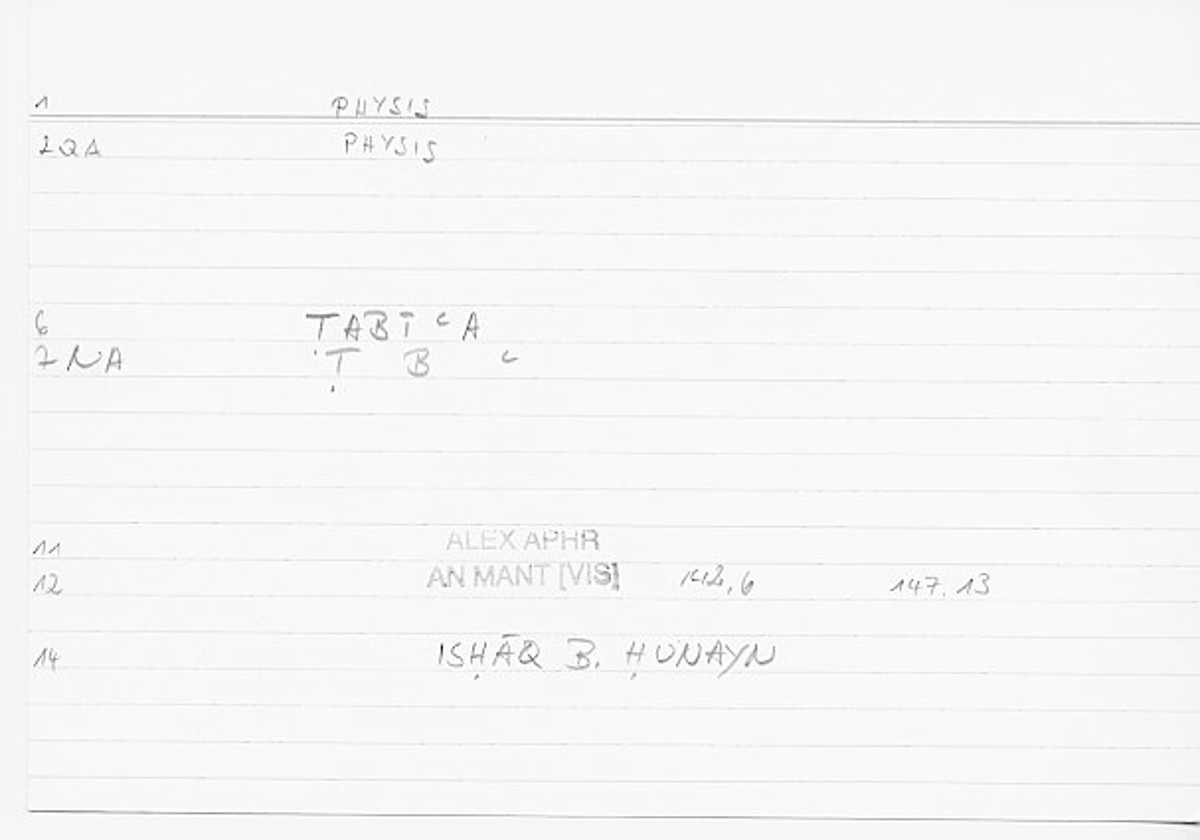 1 PHYSIS
2QA PHYSIS
6 ṬABĪ ͨ A
7NA Ṭ B ͨ
11 ALEX APHR
12 AN MANT [VIS] 142,6 147.13
14 ISḤĀQ B. ḤUNAYN